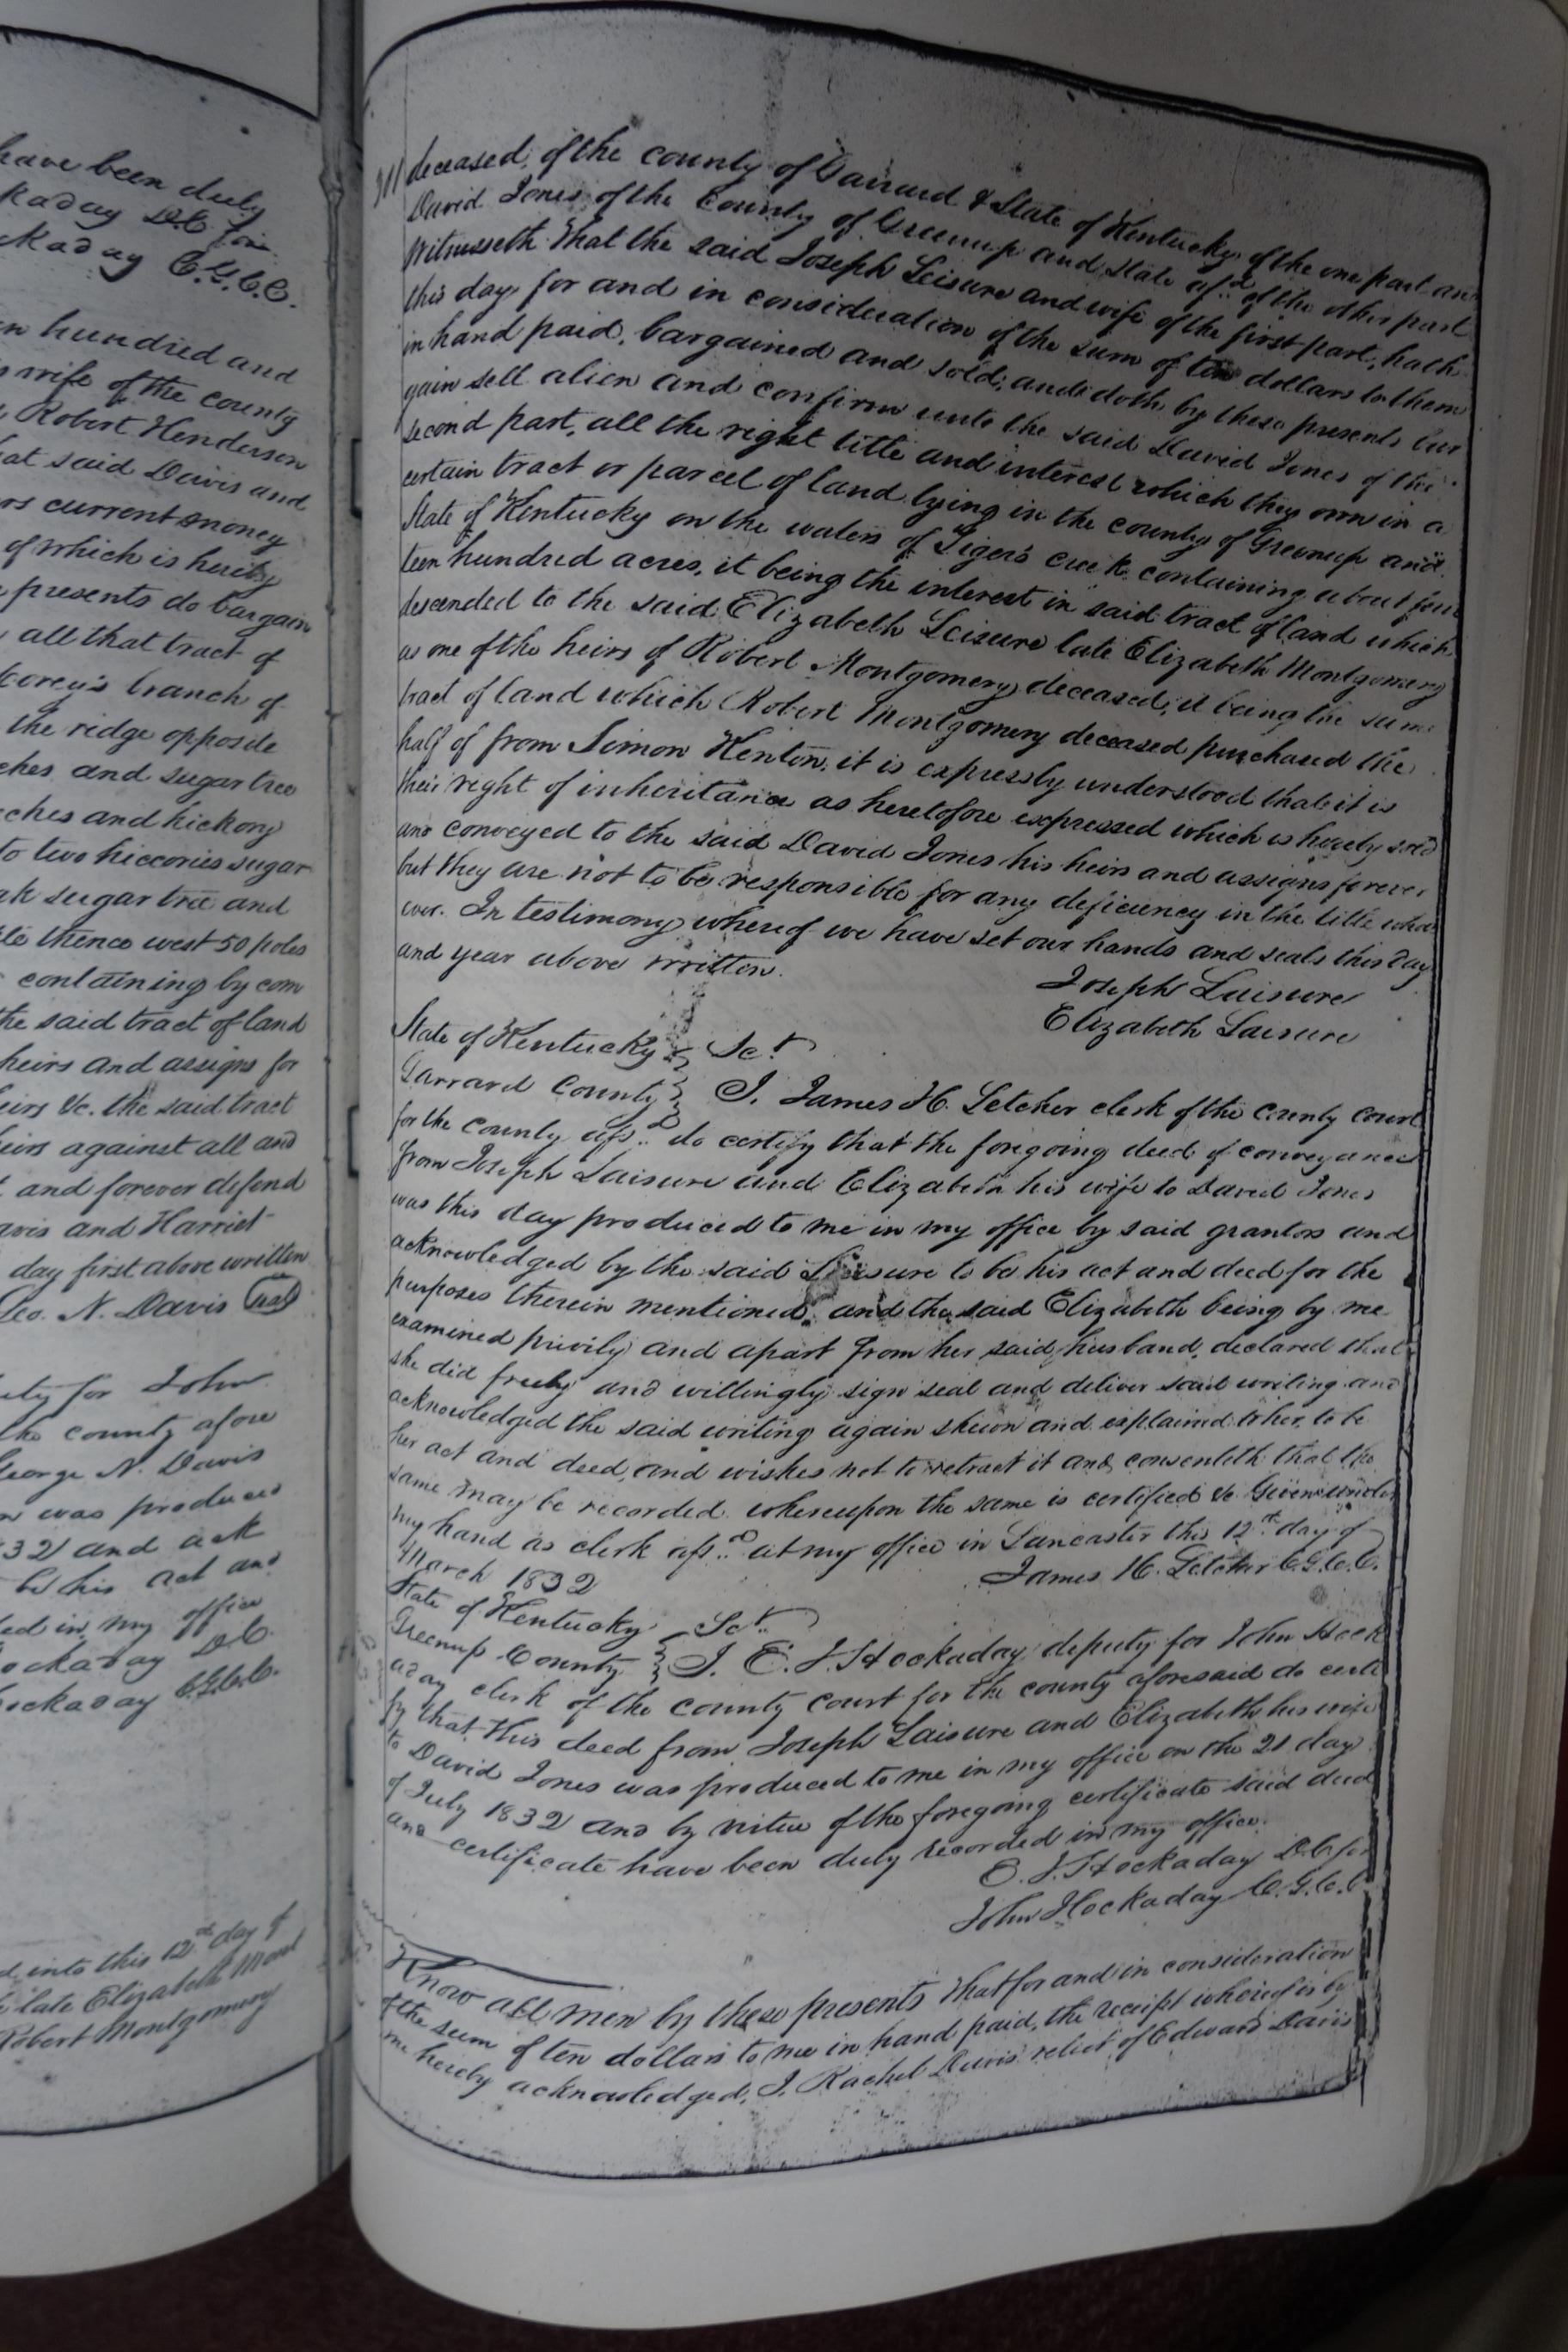 have been duly
kaday D.C. for
ckaday C.G.C.C.
n hundred and
wife of the county
Robert Henderson
at said Davis and
rs current money
of which is hereby
presents do bargain
all that tract of
corey's branch of
the ridge opposite
ches and sugar tree
eches and hickory
to two hiccories sugar
ak sugar tree and
le thence west 50 poles
containing by com
the said tract of land
heirs and assigns for
eirs &c. the said tract
heirs against all and
and forever defend
avis and Harriet
day first above written
Geo. N. Davis Seal
uty for John
the county afore
George N. Davis
was produced
32 and ack
be his act and
ed in my office
ockaday D.C.
ockaday C.G.C.C.
d into this 12th day of
late Elizabeth Mont
Robert Montgomery
311 deceased, of the county of Garrard & State of Kentucky of the one part and
David Jones of the County of Greenup and State afsd of the other part
Witnesseth that the said Joseph Leisure and wife of the first part, hath
this day for and in consideration of the sum of ten dollars to them
in hand paid, bargained and sold, and doth by these presents bar
gain sell alien and confirm unto the said David Jones of the
second part, all the right title and interest which they own in a
certain tract or parcel of land lying in the county of Greenup and
State of Kentucky on the waters of Tiger's creek containing about four
teen hundred acres, it being the interest in said tract of land which
descended to the said Elizabeth Leisure late Elizabeth Montgomery
as one of the heirs of Robert Montgomery deceased, it being the same
tract of land which Robert Montgomery deceased purchased the
half of from Simon Kenton, it is expressly understood that it is
their right of inheritance as heretofore expressed which is hereby sold
and conveyed to the said David Jones his heirs and assigns forever
but they are not to be responsible for any deficiency in the title whoe
ever. In testimony whereof we have set our hands and seals this day
and year above written.
Joseph Laisure
Elizabeth Laisure
State of Kentucky Sct
Garrard County I, James H. Letcher clerk of the county court
for the county afsd do certify that the foregoing deed of conveyance
from Joseph Laisure and Elizabeth his wife to David Jones
was this day produced to me in my office by said grantors and
acknowledged by the said Leisure to be his act and deed for the
purposes therein mentioned, and the said Elizabeth being by me
examined privily and apart from her said husband, declared that
she did freely and willingly sign seal and deliver said writing and
acknowledged the said writing again shewn and explained to her, to be
her act and deed, and wishes not to retract it and consenteth that the
same may be recorded whereupon the same is certified &c. Given under
my hand as clerk afsd at my office in Lancaster this 12th day of
March 1832
James H. Letcher C.G.C.C.
State of Kentucky Sct.
Greenup County I, E. J. Hockaday deputy for John Hock
aday clerk of the county court for the county aforesaid do certi
fy that this deed from Joseph Laisure and Elizabeth his wife
to David Jones was produced to me in my office on the 21 day
of July 1832 and by virtue of the foregoing certificate said deed
and certificate have been duly recorded in my office.
E. J. Hockaday D.C. for
John Hockaday C.G.C.C
Know all men by these presents that for and in consideration
of the sum of ten dollars to me in hand paid, the receipt whereof is by
me hereby acknowledged, I, Rachel Davis relict of Edward Davis